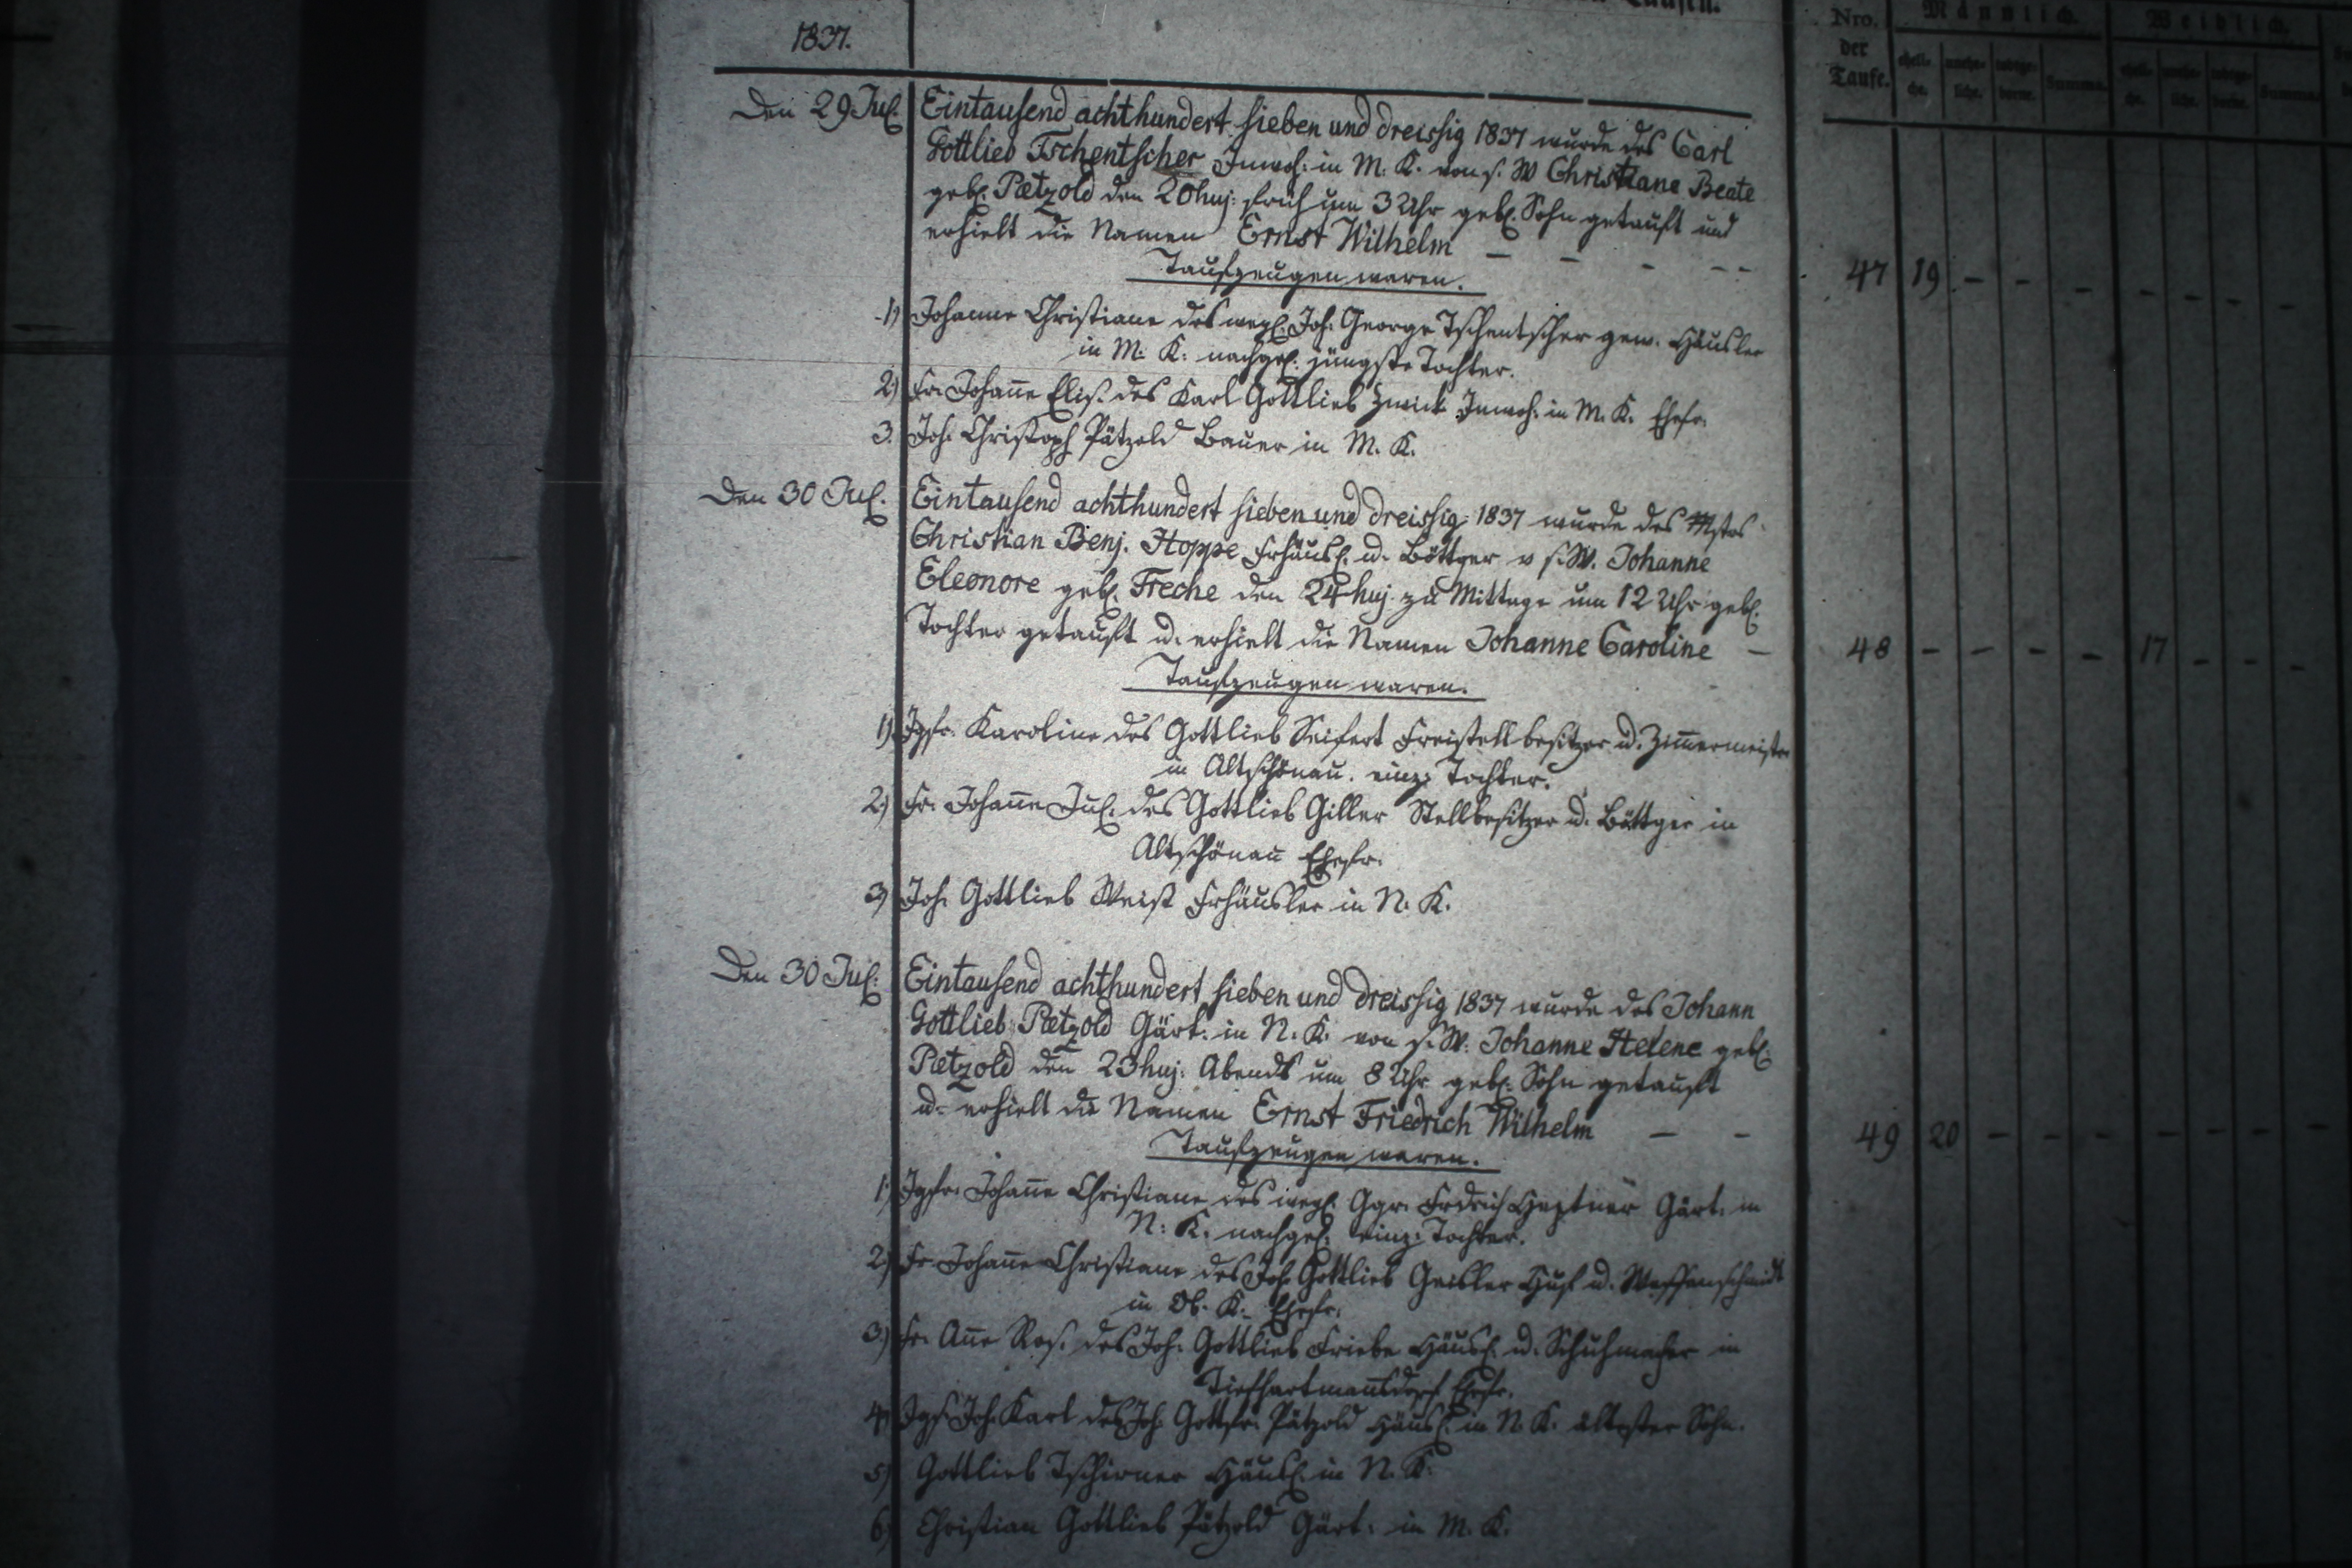 Taufen.
1837.
Nro. der Taufe.
Männlich.
Weiblich.
eheli- che.
unehe- liche.
Summa.
eheli- che.
unehe- liche.
Summa.
Den 29 Jul. Eintausend achthundert sieben und dreissig 1837 wurde des Carl
Gottlieb Tschentscher Inwoh: in M. K. von s. W Christiane Beate
geb. Pætzold den 20 huj: früh um 3 Uhr geb. Sohn getauft und
erhielt die Namen Ernst Wilhelm - - - - -
47 19 - - - - - - -
Taufzeugen waren.
1) Johanne Christiane des weyl. Joh. George Tschentscher gew. Häusler
in M. K. nachgel. jüngste Tochter.
2) Fr. Johanne Elis. des Karl Gottlieb Zwick Inwoh. in M. K. Ehefr.
3. Joh. Christoph Pätzold Bauer in M. K.
Den 30 Jul. Eintausend achthundert sieben und dreissig 1837 wurde des Mstrs
Christian Benj. Hoppe Frhäusl. u. Böttger v s. W. Johanne
Eleonore geb. Freche den 24 huj. zu Mittage um 12 Uhr geb.
Tochter getauft u. erhielt die Namen Johanne Caroline -
48 - - - - 17 - - -
Taufzeugen waren.
1) Jgfr. Karoline des Gottlieb Seifert Freistellbesitzer u. Zimmermeister
in Altschönau. einz. Tochter.
2) Fr. Johanne Jul. des Gottlieb Giller Stellbesitzer u. Böttger in
Altschönau Ehefr.
3) Joh. Gottlieb Weist Frhäusler in N. K.
Den 30 Jul. Eintausend achthundert sieben und dreissig 1837 wurde des Johann
Gottlieb Pætzold Gärt. in N. K. von s. W. Johanne Helene geb.
Pætzold den 23 huj. Abends um 8 Uhr geb. Sohn getauft
u. erhielt die Namen Ernst Friedrich Wilhelm - -
49 20 - - - - - - -
Taufzeugen waren.
1. Jgfr. Johanne Christiane des weyl. Ggr. Frdrich Gärt. in
N. K. nachgel. einz. Tochter.
2) Fr Johanne Christiane des Joh. Gottlieb Geisler Huf u. Waffenschmidt
in Ob. K. Ehefr.
3) Fr. Anne Ros. des Joh. Gottlieb Friebe Häusl. u. Schuhmacher in
Tiefhartmannsdorf Ehefr.
4) Jgs. Joh. Karl des Joh. Gottfr. Pätzold Häusl. in N. K. ältester Sohn.
5) Gottlieb Tschirner Häusl. in N. K.
6) Christian Gottlieb Pätzold Gärt. in M. K.